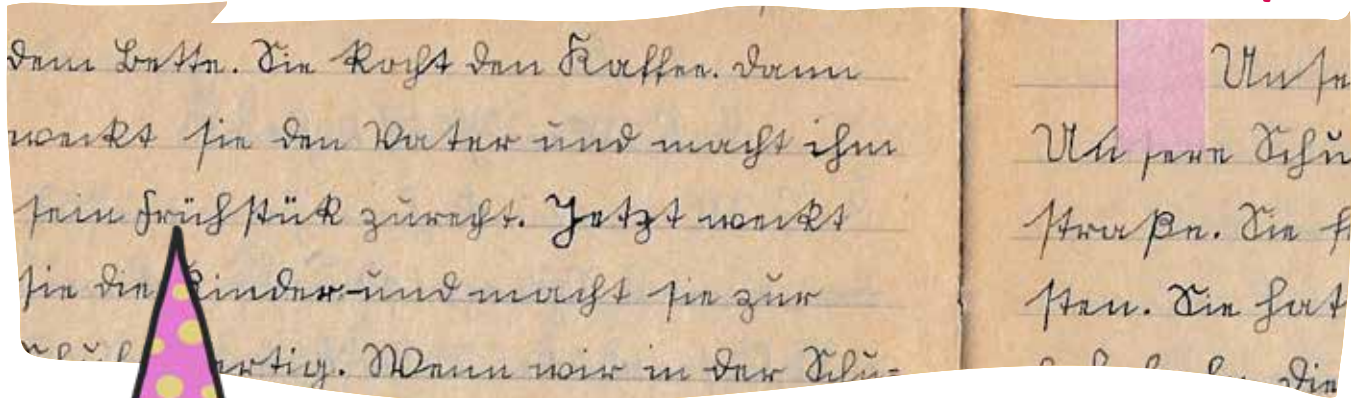 dem Bette. Sie kocht den Kaffee. Dann
weckt sie den Vater und macht ihm
sein Frühstük zurecht. Jetzt weckt
sie die Kinder und macht sie zur
ertig. Wenn wir in der Schu-
Unse
Unsere Schu
straße. Sie
sten. Sie hat
Die